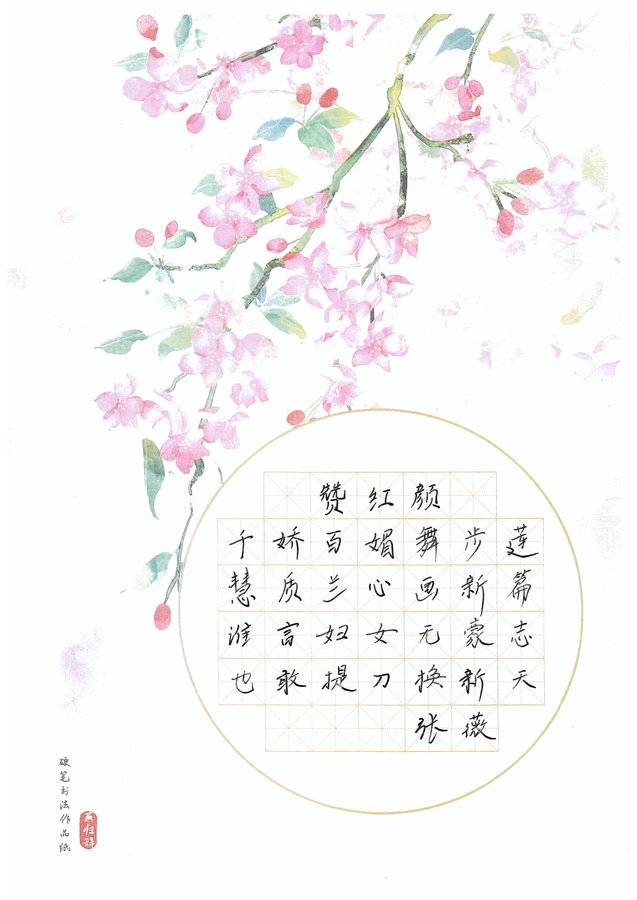 赞红颜
千娇百媚舞步莲
慧质兰心画新篇
谁言妇女无豪志
也敢提刀换新天
张薇
硬笔书法作品纸